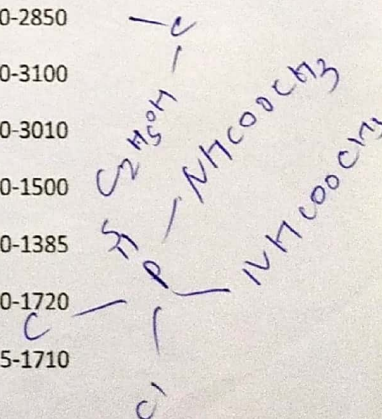 0-2850
0-3100
0-3010
0-1500
0-1385
0-1720
5-1710
C
C2H5OH
NHCOOCH3
P
NHCOOCH3
C
Cl